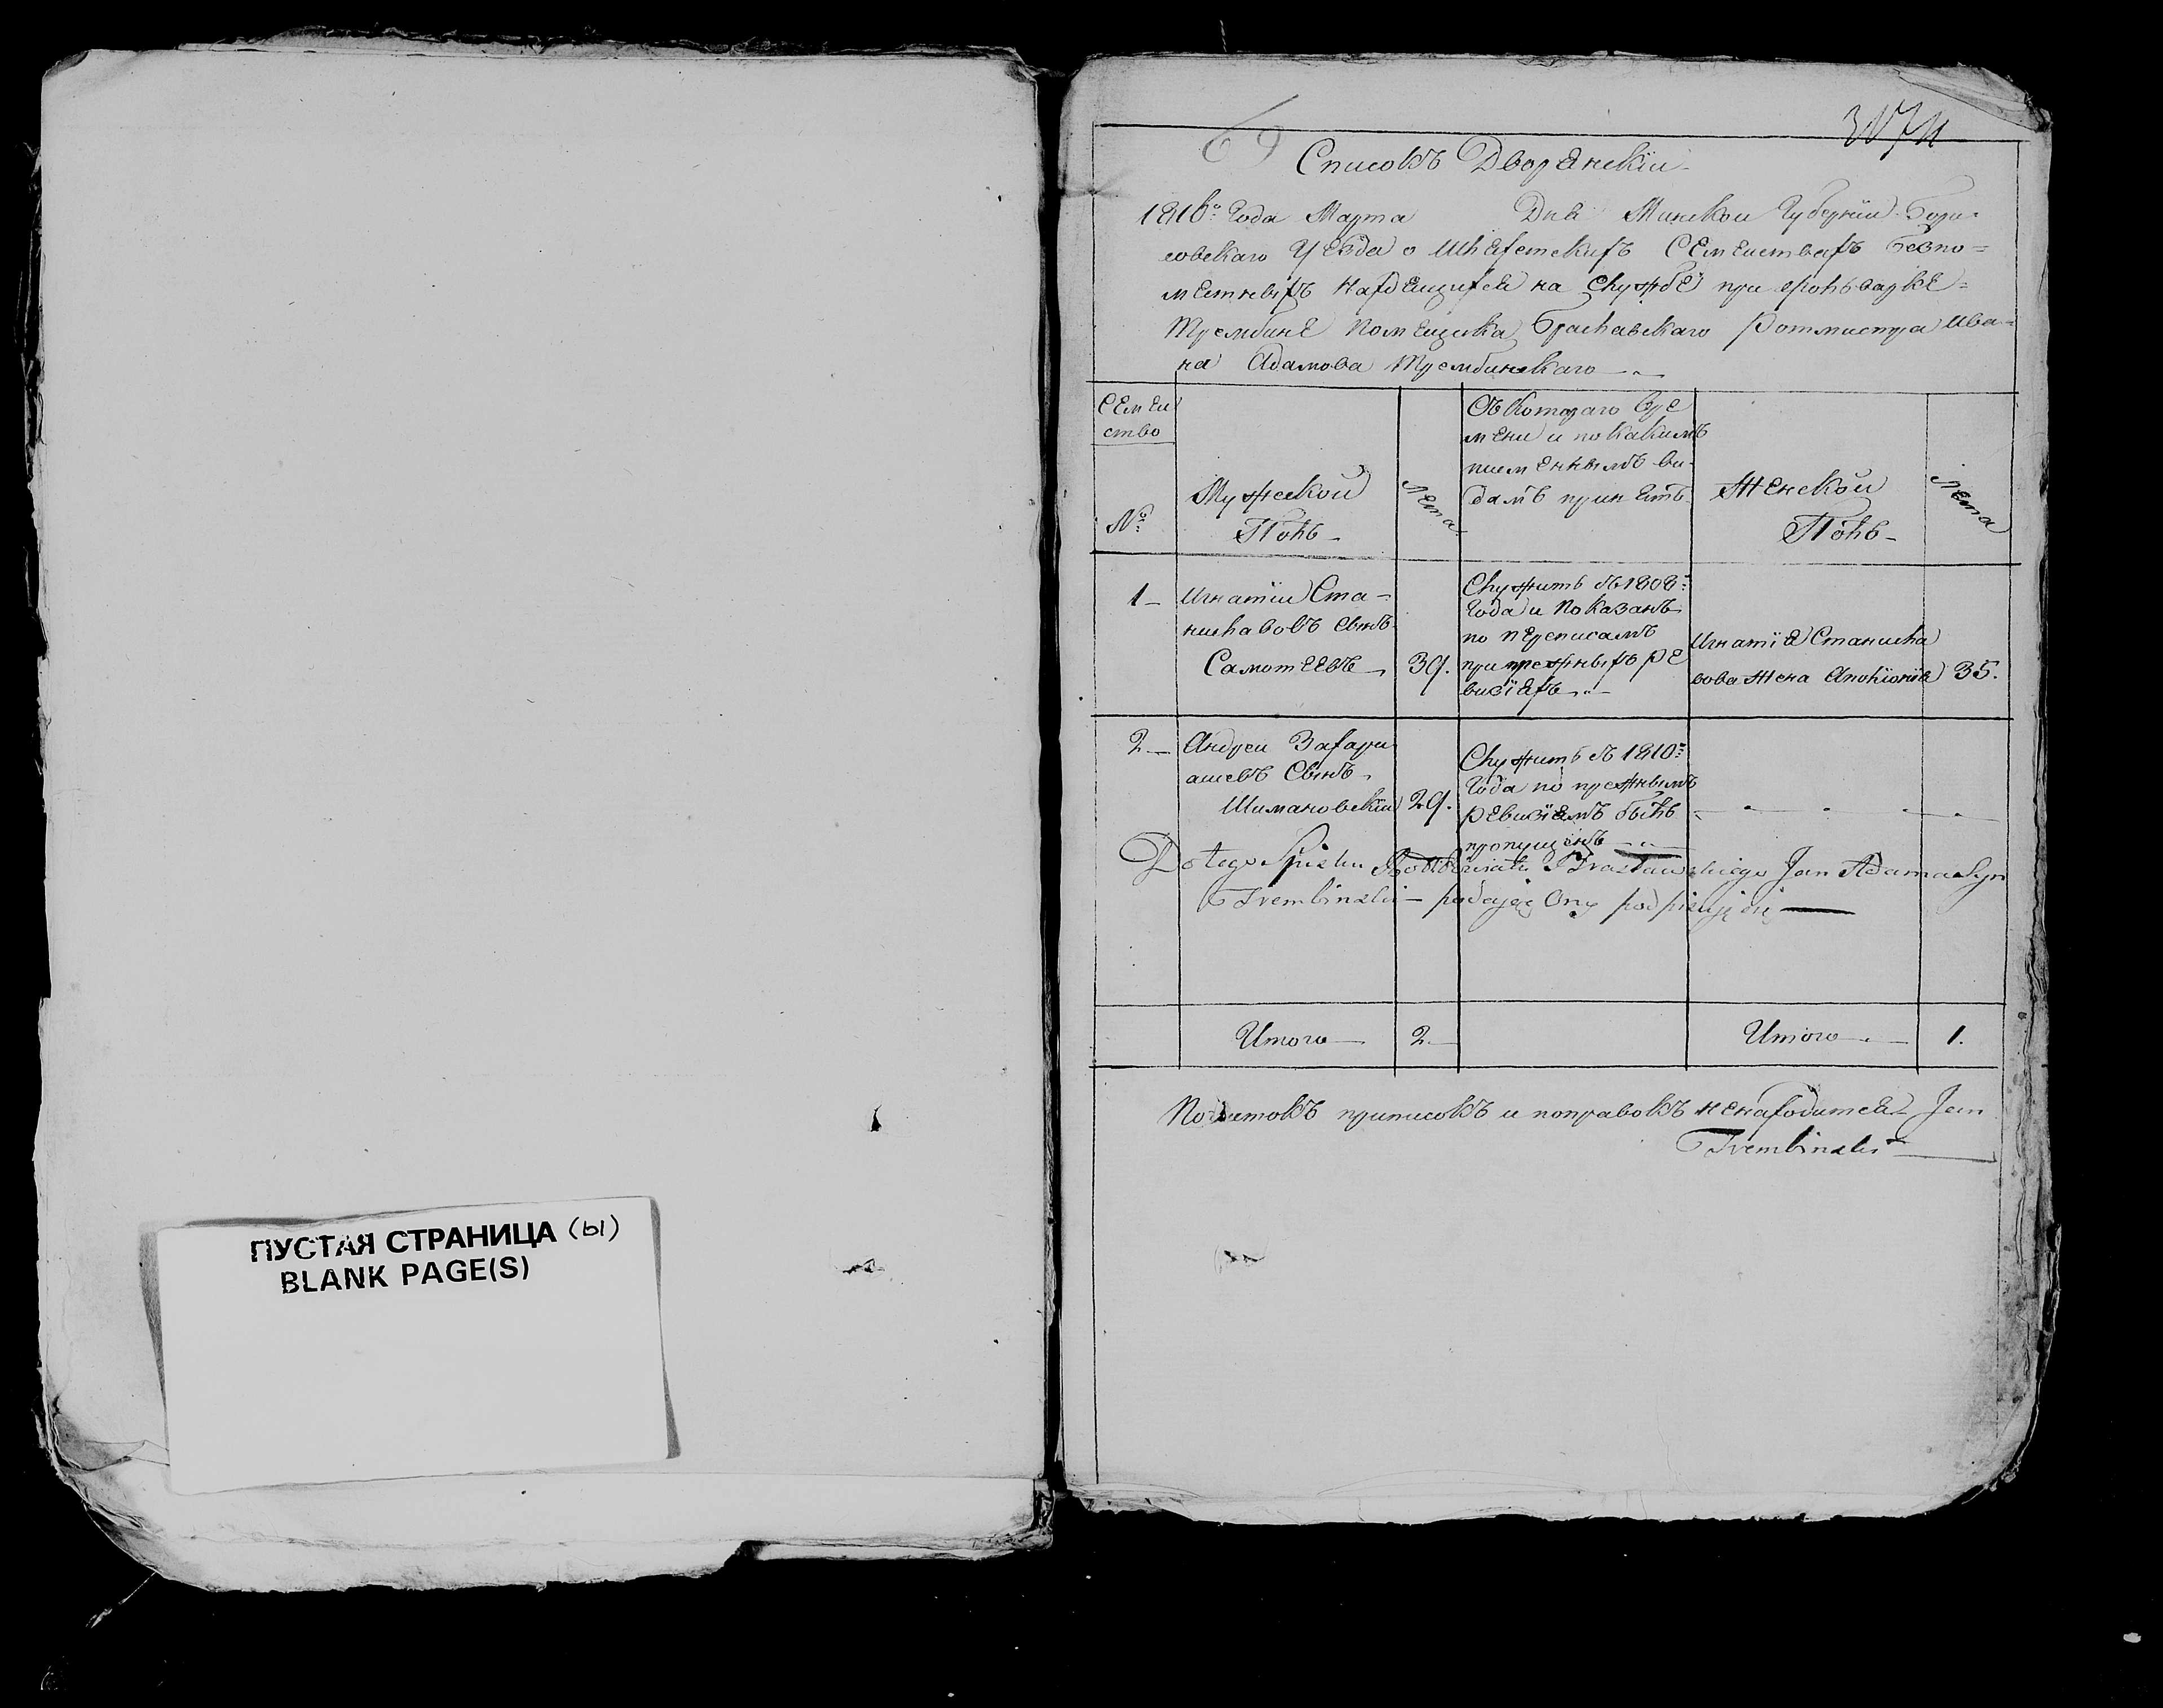 69
Списокъ Дворянскій
1816го Года Марта Дня Минской Губерніи Бори-
совскаго Уезда о Шляхетскихъ Семействахъ безпо-
местныхъ находящихся на службе при фольваркѣ
Трембине помещика Браславскаго Ротмистра Ива-
на Адамова Трембинскаго
Семей
ство
№
Мужеской
Полъ
Лета
Съ Котораго вре
мени и по какимъ
писменнымъ ви-
дамъ принятъ
Женской
Полъ
Лета
1
Игнатій Ста-
ниславовъ сынъ
Самотеевъ
39.
Служитъ съ 1808го
Года и показанъ
по переписамъ
при прежныхъ ре
визіяхъ
Игнатія Станисла
вова жена Аполіонія
35.
2
Андрей Захари
ашевъ Сынъ
Шимановскій
29.
Служитъ съ 1810го
Года по прежнымъ
ревизіямъ былъ
пропущенъ
Do tego Spisku Brasławskiego Jan Adama Syn
Trembinski podając Ony podpisuję się
Итого
2
Итого
1.
приписокъ и поправокъ ненаходится Jan
Trembinski
ПУСТАЯ СТРАНИЦА (Ы)
BLANK PAGE(S)